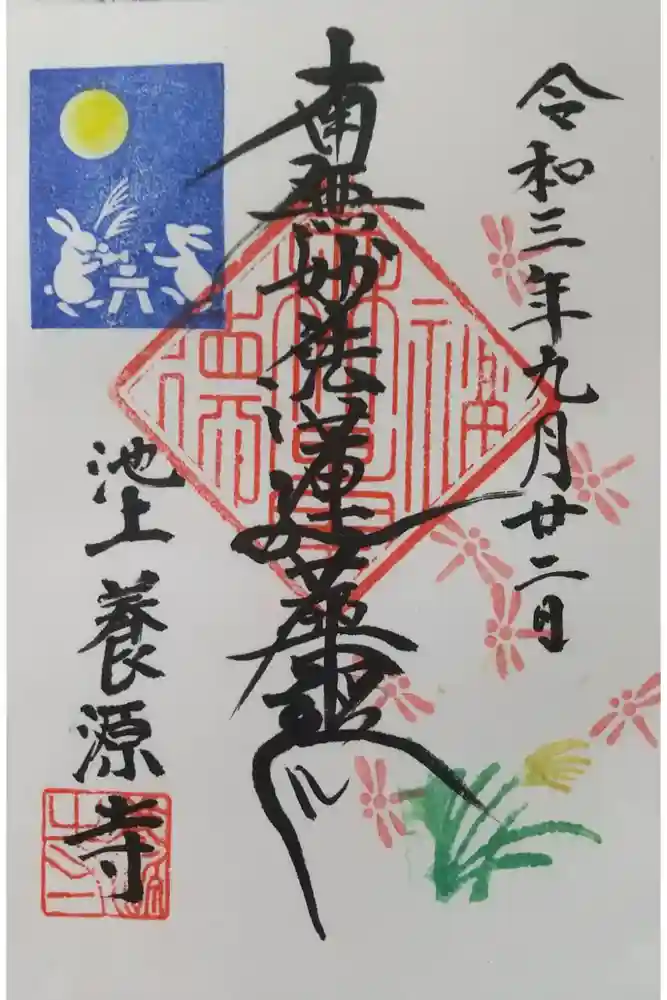 令和三年九月廿二日
南無妙法蓮華經
池上
養源寺